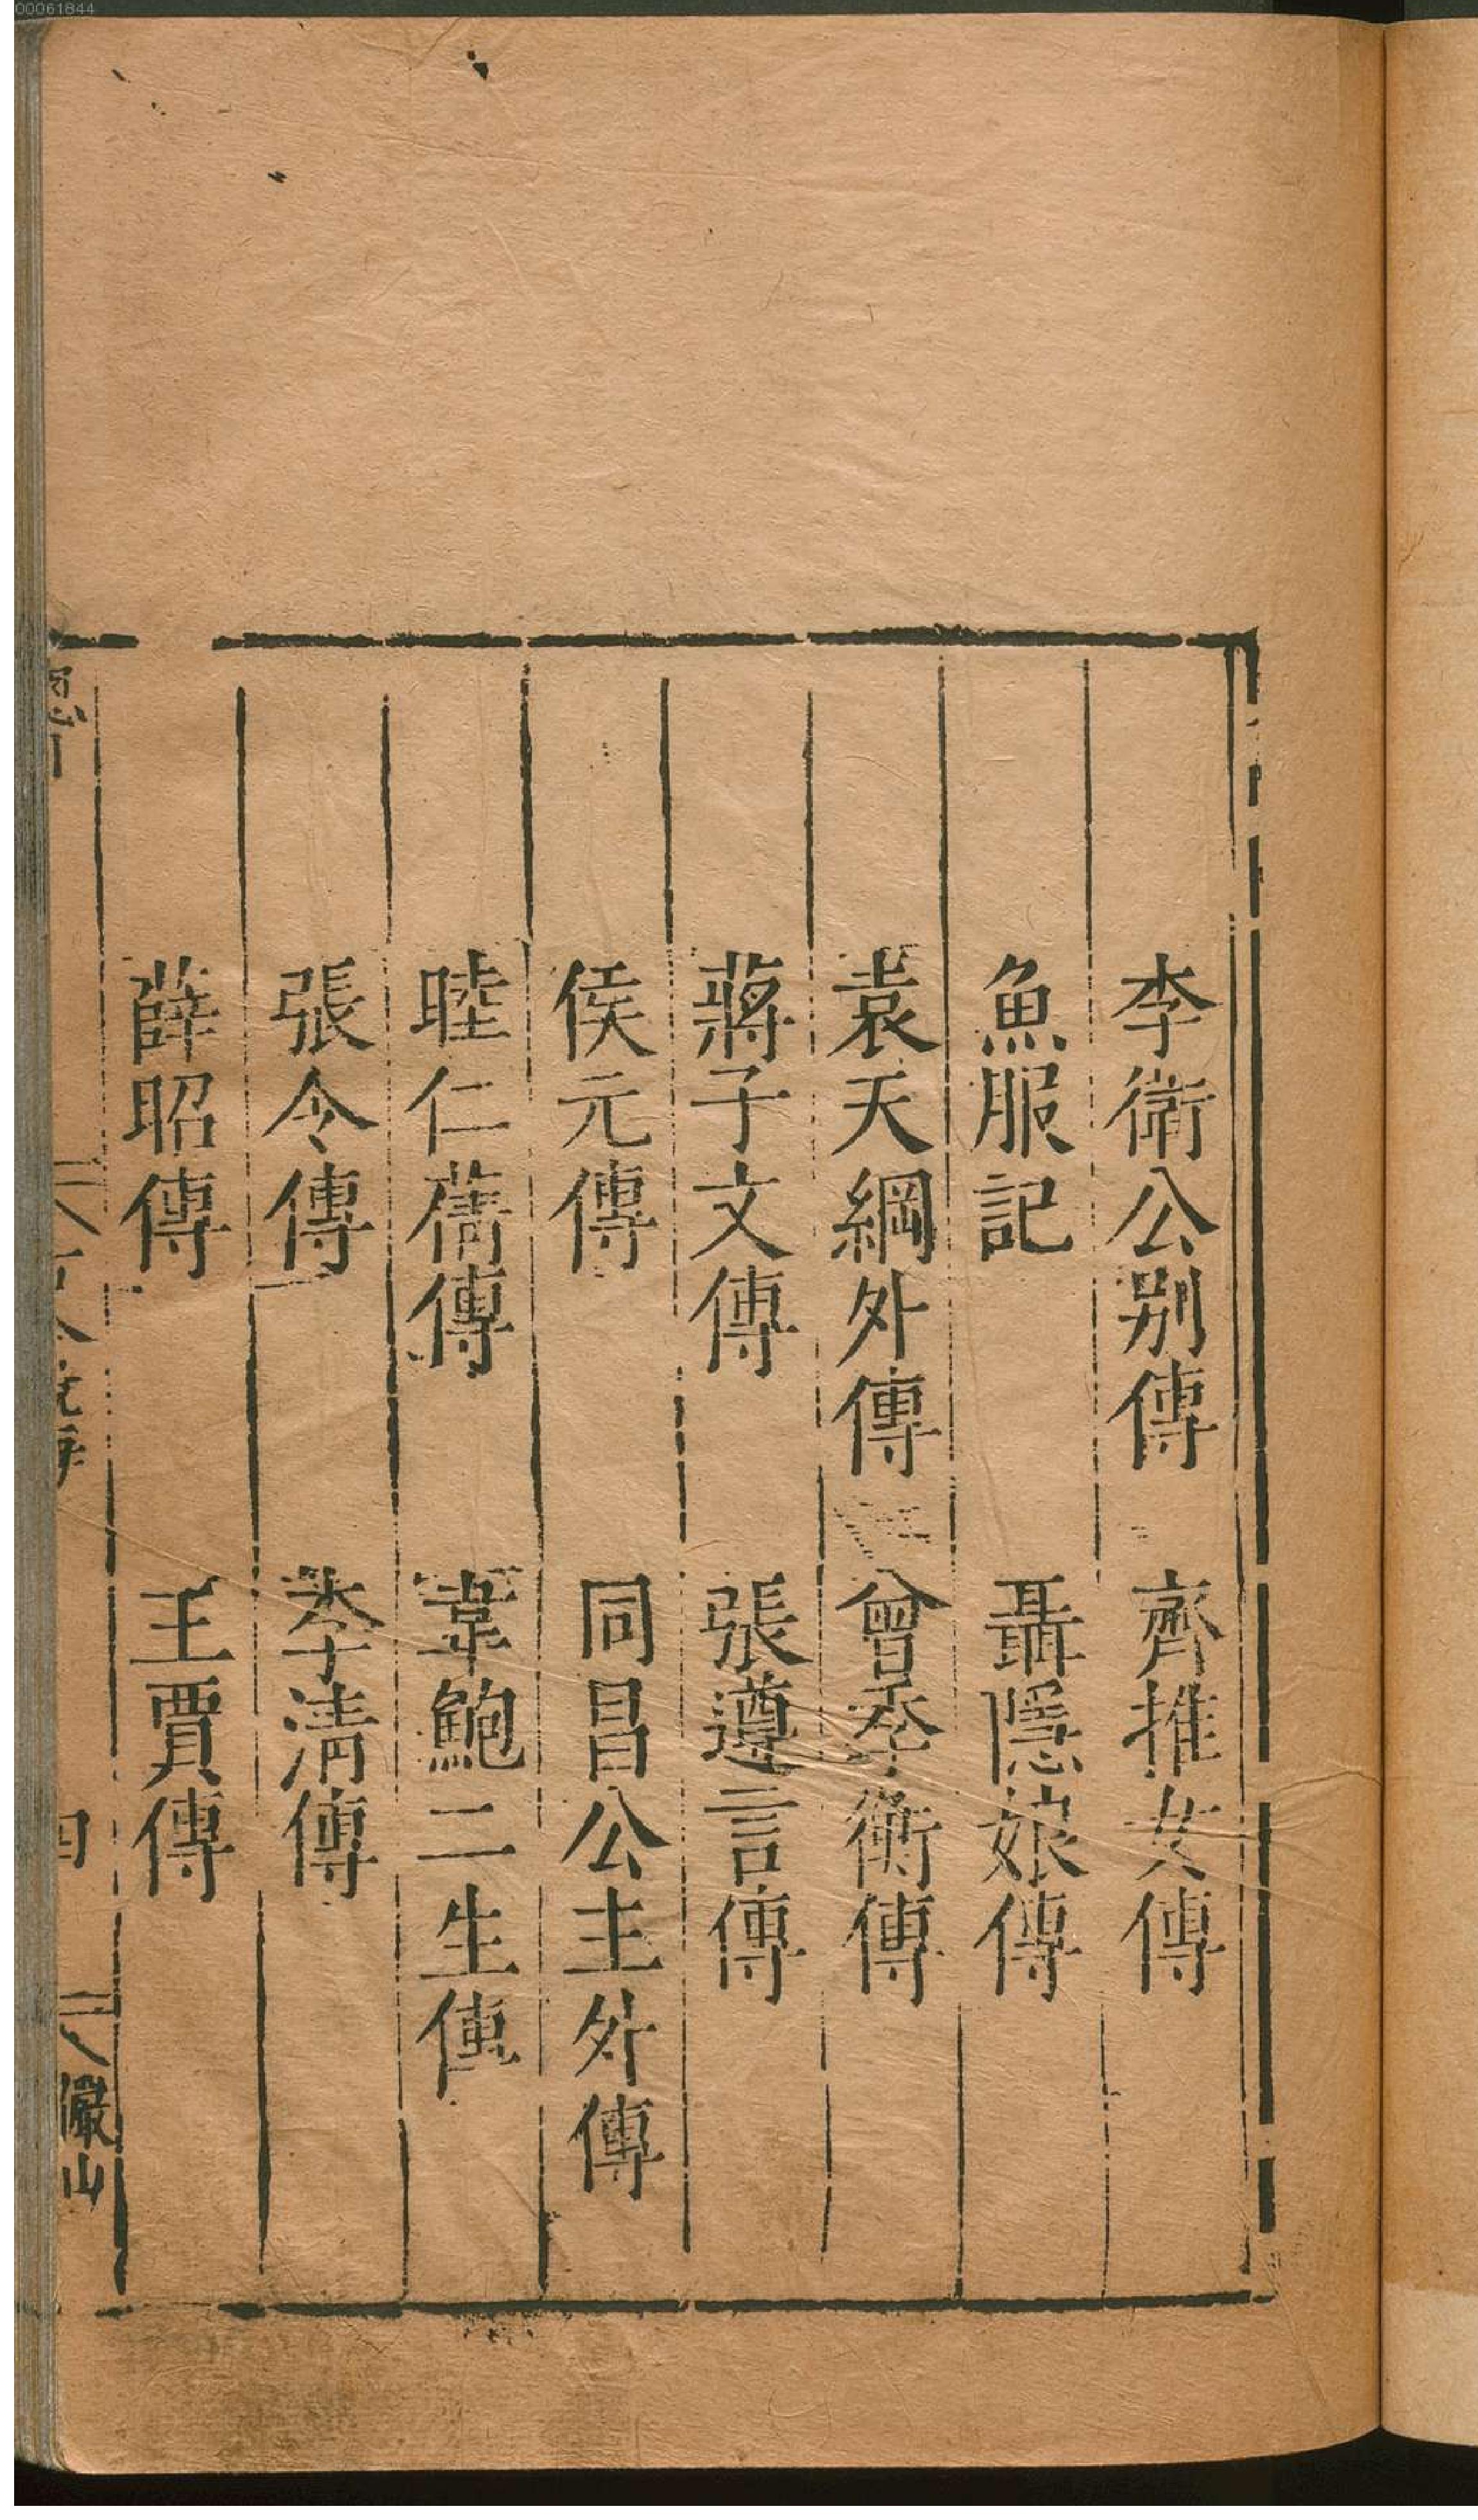 00061844
李衛公別傳　齊推女傳
魚服記　聶隱娘傳
袁天綱外傳　曾季衡傳
蔣子文傳　張遵言傳
侯元傳　同昌公主外傳
睦仁蒨傳　韋鮑二生傳
張令傳　李清傳
薛昭傳　王賈傳
儼山